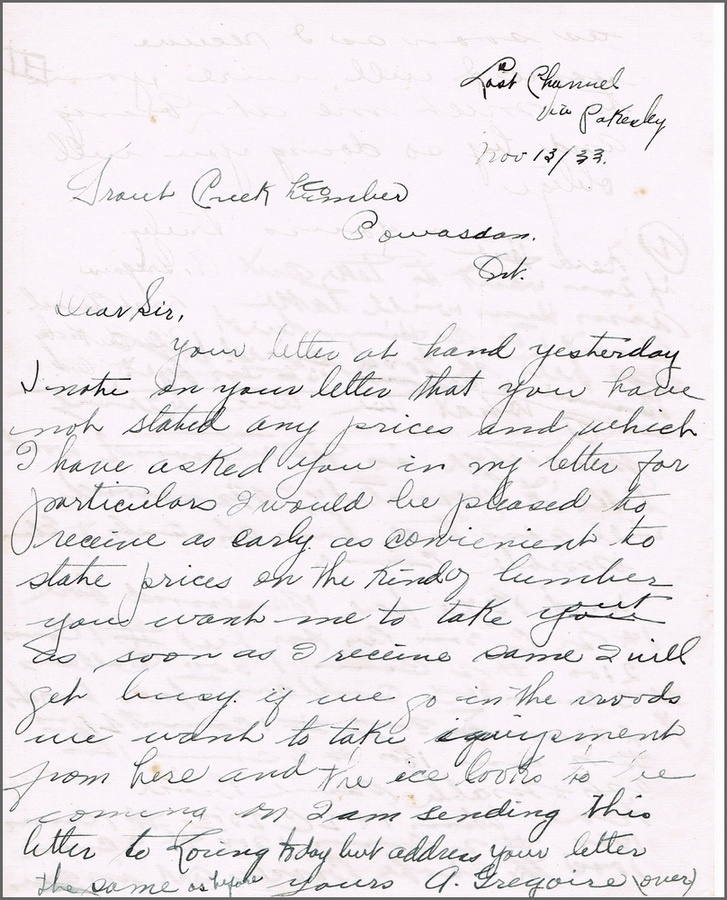 Lost Channel
via Pakesley
Nov 13/33.
Trout Creek Lumber Co
Powassan.
Ont.
Dear Sir,
Your letter at hand yesterday
I note on your letter that you have
not stated any prices and which
I have asked you in my letter for
particulars I would be pleased to
receive as early as convienient to
state prices on the kind of lumber
you want me to take out
as soon as I receive same I will
get busy. if we go in the woods
we want to take equipment
from here and the ice looks to be
coming on I am sending this
letter to Loring today but address your letter
the same as before yours A. Gregoire (over)